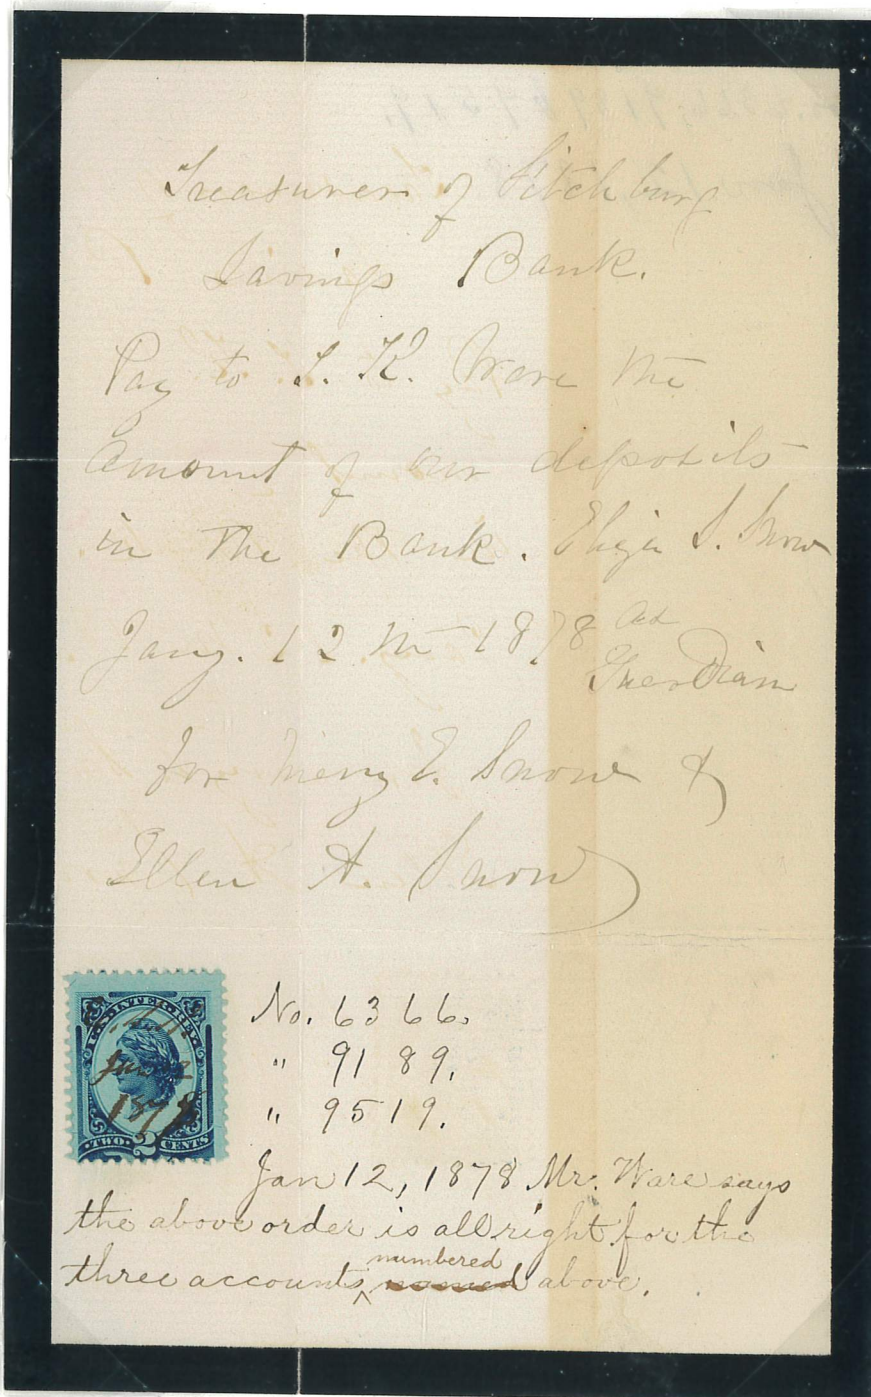 Treasurer of Fitchburg
Savings Bank.
Pay to S. K. Ware the
amount of our deposits
in the Bank. Elija S. Snow
Jany. 12th 1878 as
Guardian
for Mery E. Snow &
Ellen A. Snow
U.S. INTER. REV.
Jan 12
1878
TWO 2 CENTS
No. 6366.
" 9189.
" 9519.
Jan 12, 1878 Mr. Ware says
the above order is all right for the
numbered
three accounts ^ named above.